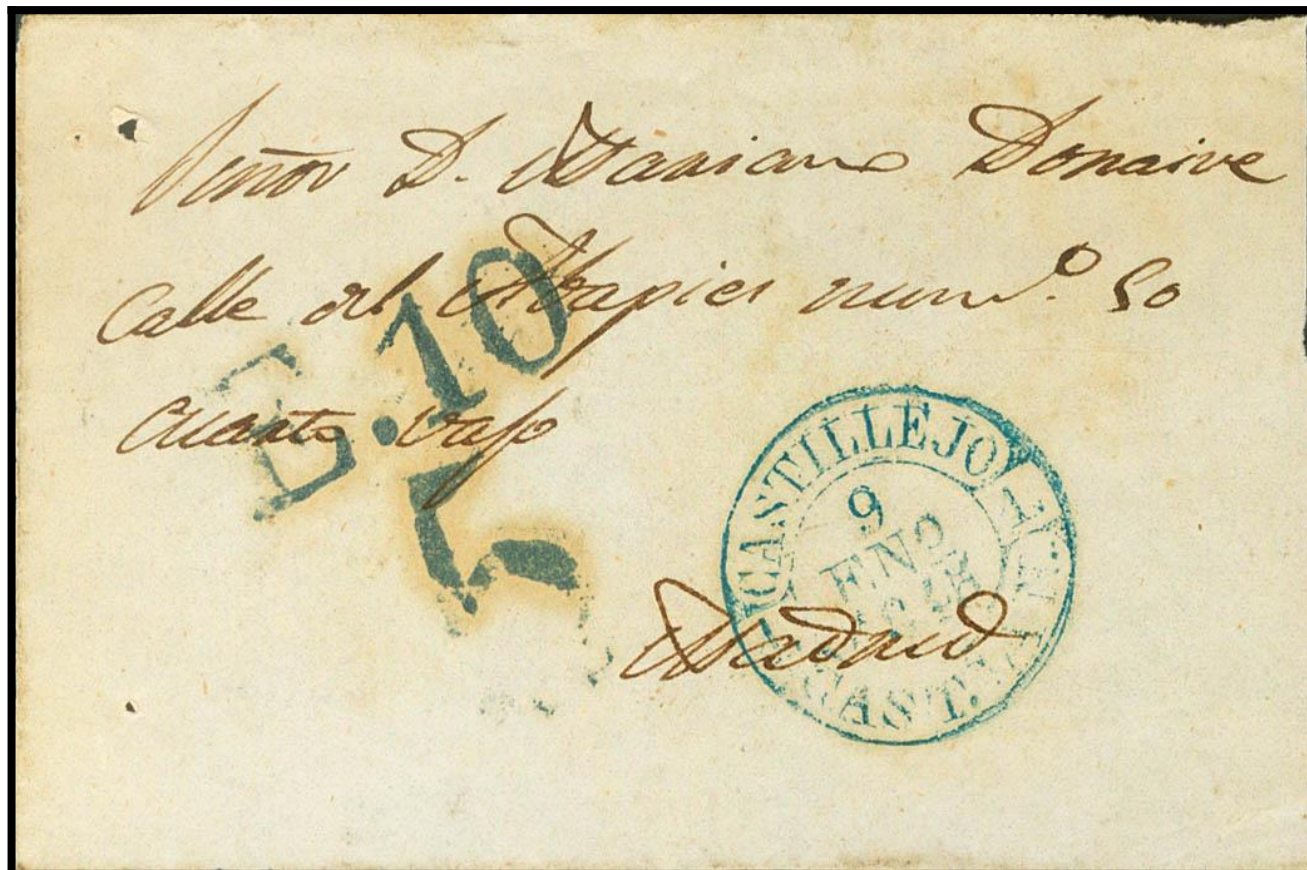 Señor D. Mariano Donaire
Calle del Abapies num.º 50
E.10
cuarto vajo
5
CASTILLEJO
9
ENº
Madrid
CAST.